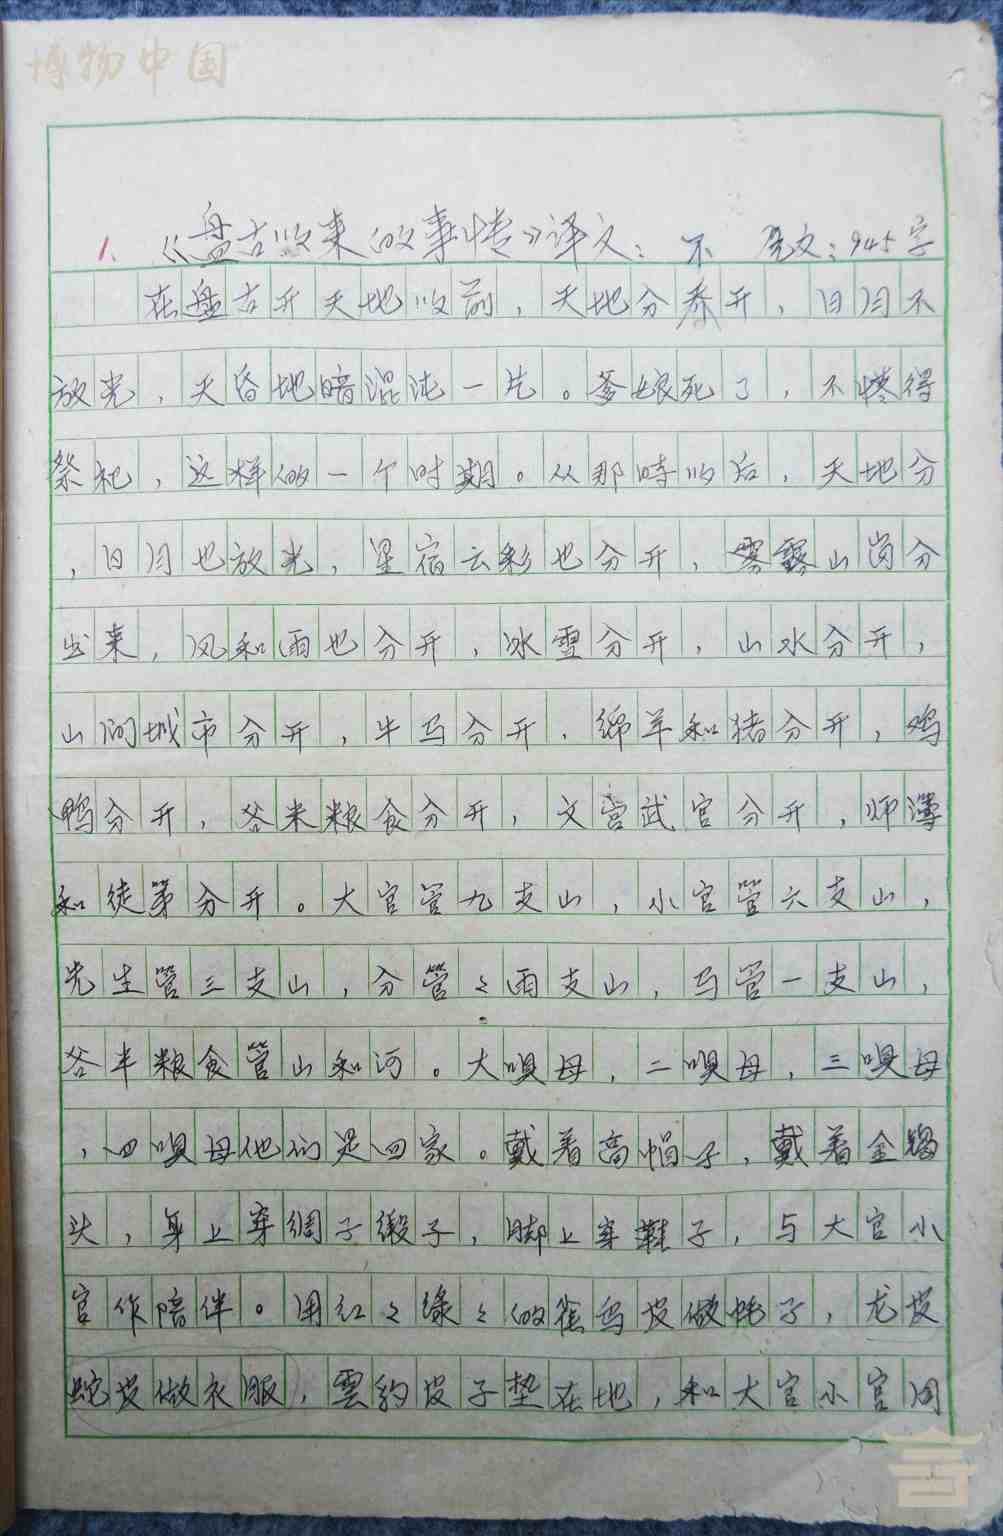 博物中国
1. 《盘古以来的事情》译文: 不 全文:945字
在盘古开天地以前,天地分不开,日月不
放光,天昏地暗混沌一片。爹娘死了,不懂得
祭祀,这样的一个时期。从那時以后,天地分
,日月也放光,星宿云彩也分开,雾露山岗分
出来,风和雨也分开,冰雪分开,山水分开,
山涧城市分开,牛马分开.绵羊和猪分开,鸡
鸭分开,谷米粮食分开,文官武官分开,师薄
和徒第分开。大官管九支山,小官管六支山,
先生管三支山,分管々两支山,马管一支山,
谷米粮食管山和河。大唄母,二唄母,三唄母
,四唄母他们是四家。戴着高帽子,戴着金
头,身上穿绸子缎子,脚上穿鞋子,与大官小
官作陪伴。用红々绿々的雀鸟皮做帐子,龙皮
蛇皮做衣服,雲豹皮子垫在地,和大官小官同